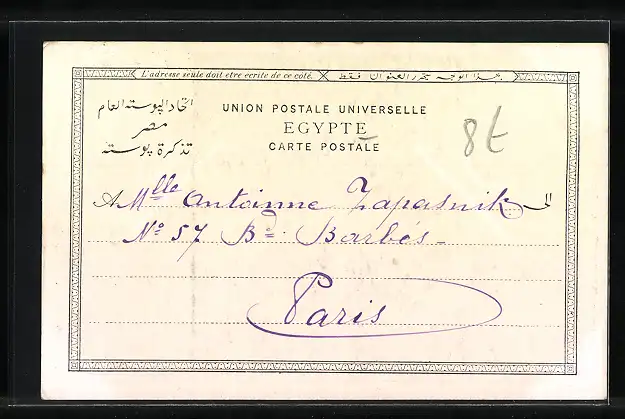 L'adresse seule doit etre ecrite de ce coté. بهذا الوجه يحرر العنوان فقط
اتحاد البوسته العام
مصر
تذكرة بوسته
UNION POSTALE UNIVERSELLE
EGYPTE
CARTE POSTALE
8t
A Mlle Antoinne Zapasnik الى
No 57 Bd. Barbès
Paris